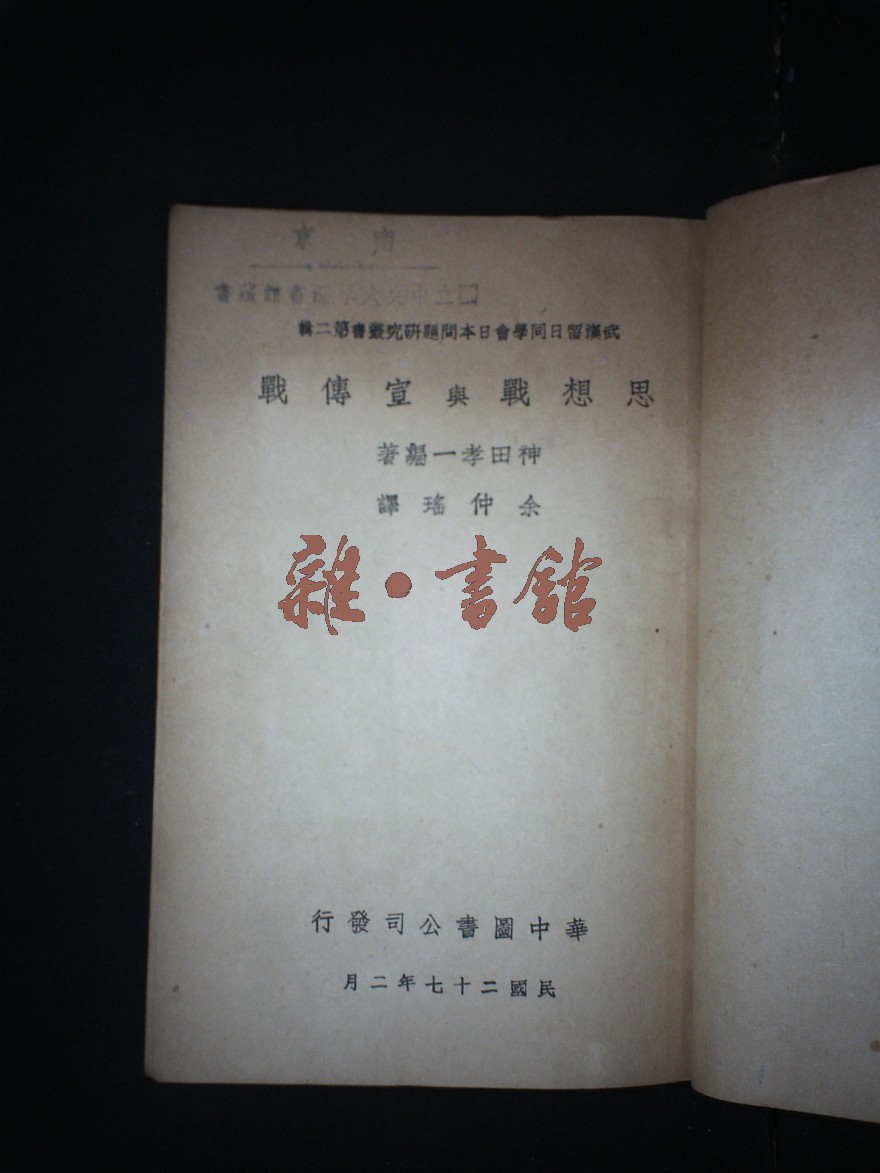 南京
國立中央大學圖書館藏書
武漢留日同學會日本問題研究叢書第二輯
思想戰與宣傳戰
神田孝一編著
余仲瑤譯
雜·書館
華中圖書公司發行
民國二十七年二月